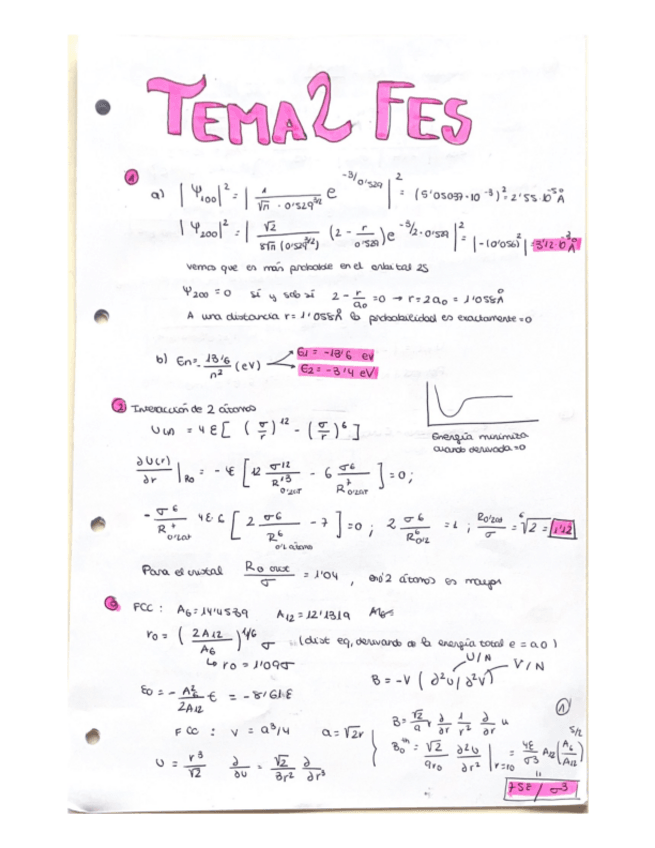 TEMA 2 FES
1
a) |Ψ₁₀₀|² = | 1/(√π · 0'529^(3/2)) e^(-3/0'529) |² = (5'05037·10⁻³)² = 2'55·10⁻⁵ Å
|Ψ₂₀₀|² = | √2/(8√π (0'529^(3/2))) (2 - r/0'529) e^(-3/2·0'529) |² = |-(0'056)²| = 3'12·10⁻³ Å
vemos que es más probable en el orbital 2S
Ψ₂₀₀ = 0 sí y solo sí 2 - r/a₀ = 0 → r = 2a₀ = 1'058 Å
A una distancia r = 1'058 Å la probabilidad es exactamente = 0
b) En = 13'6/n² (eV) E1 = -13'6 eV
E2 = -3'4 eV
2 Interacción de 2 átomos
U(r) = 4ε [ (σ/r)¹² - (σ/r)⁶ ]
Energía minimiza
cuando derivada = 0
∂U(r)/∂r |R₀ = - 4ε [ 12 σ12/R¹³ 0'2at - 6 σ6/R⁷ 0'2at ] = 0 ;
- σ6/R⁷ 0'2at 4ε·6 [ 2 σ6/R⁶ 0'2 átomo - 1 ] = 0 ; 2 σ6/R⁶ 0'2 = 1 ; R0'2at/σ = ⁶√2 = 1'12
Para el cristal R₀ crist/σ = 1'04 , en 2 átomos es mayor
3 FCC : A₆ = 14'4539 A₁₂ = 12'1319
r₀ = ( 2A12/A₆ )^(1/6) σ (dist eq, derivando de la energía total e = a 0 )
↳ r₀ = 1'09σ
U/N V/N
B = -V ( ∂²U/∂²V )
ε₀ = - A₆²/2A12 ε = -8'61ε
1
FCC : V = a³/4 a = √2r
B = √2/9r ∂/∂r 1/r² ∂/∂r u
U = r³/√2 ∂/∂U = √2/3r² ∂/∂r³
B₀ᵗʰ = √2/9r₀ ∂²U/∂r² |r=r0 = 4ε/σ3 A₁₂ (A₆/A₁₂)^(5/2)
=
75ε / σ³